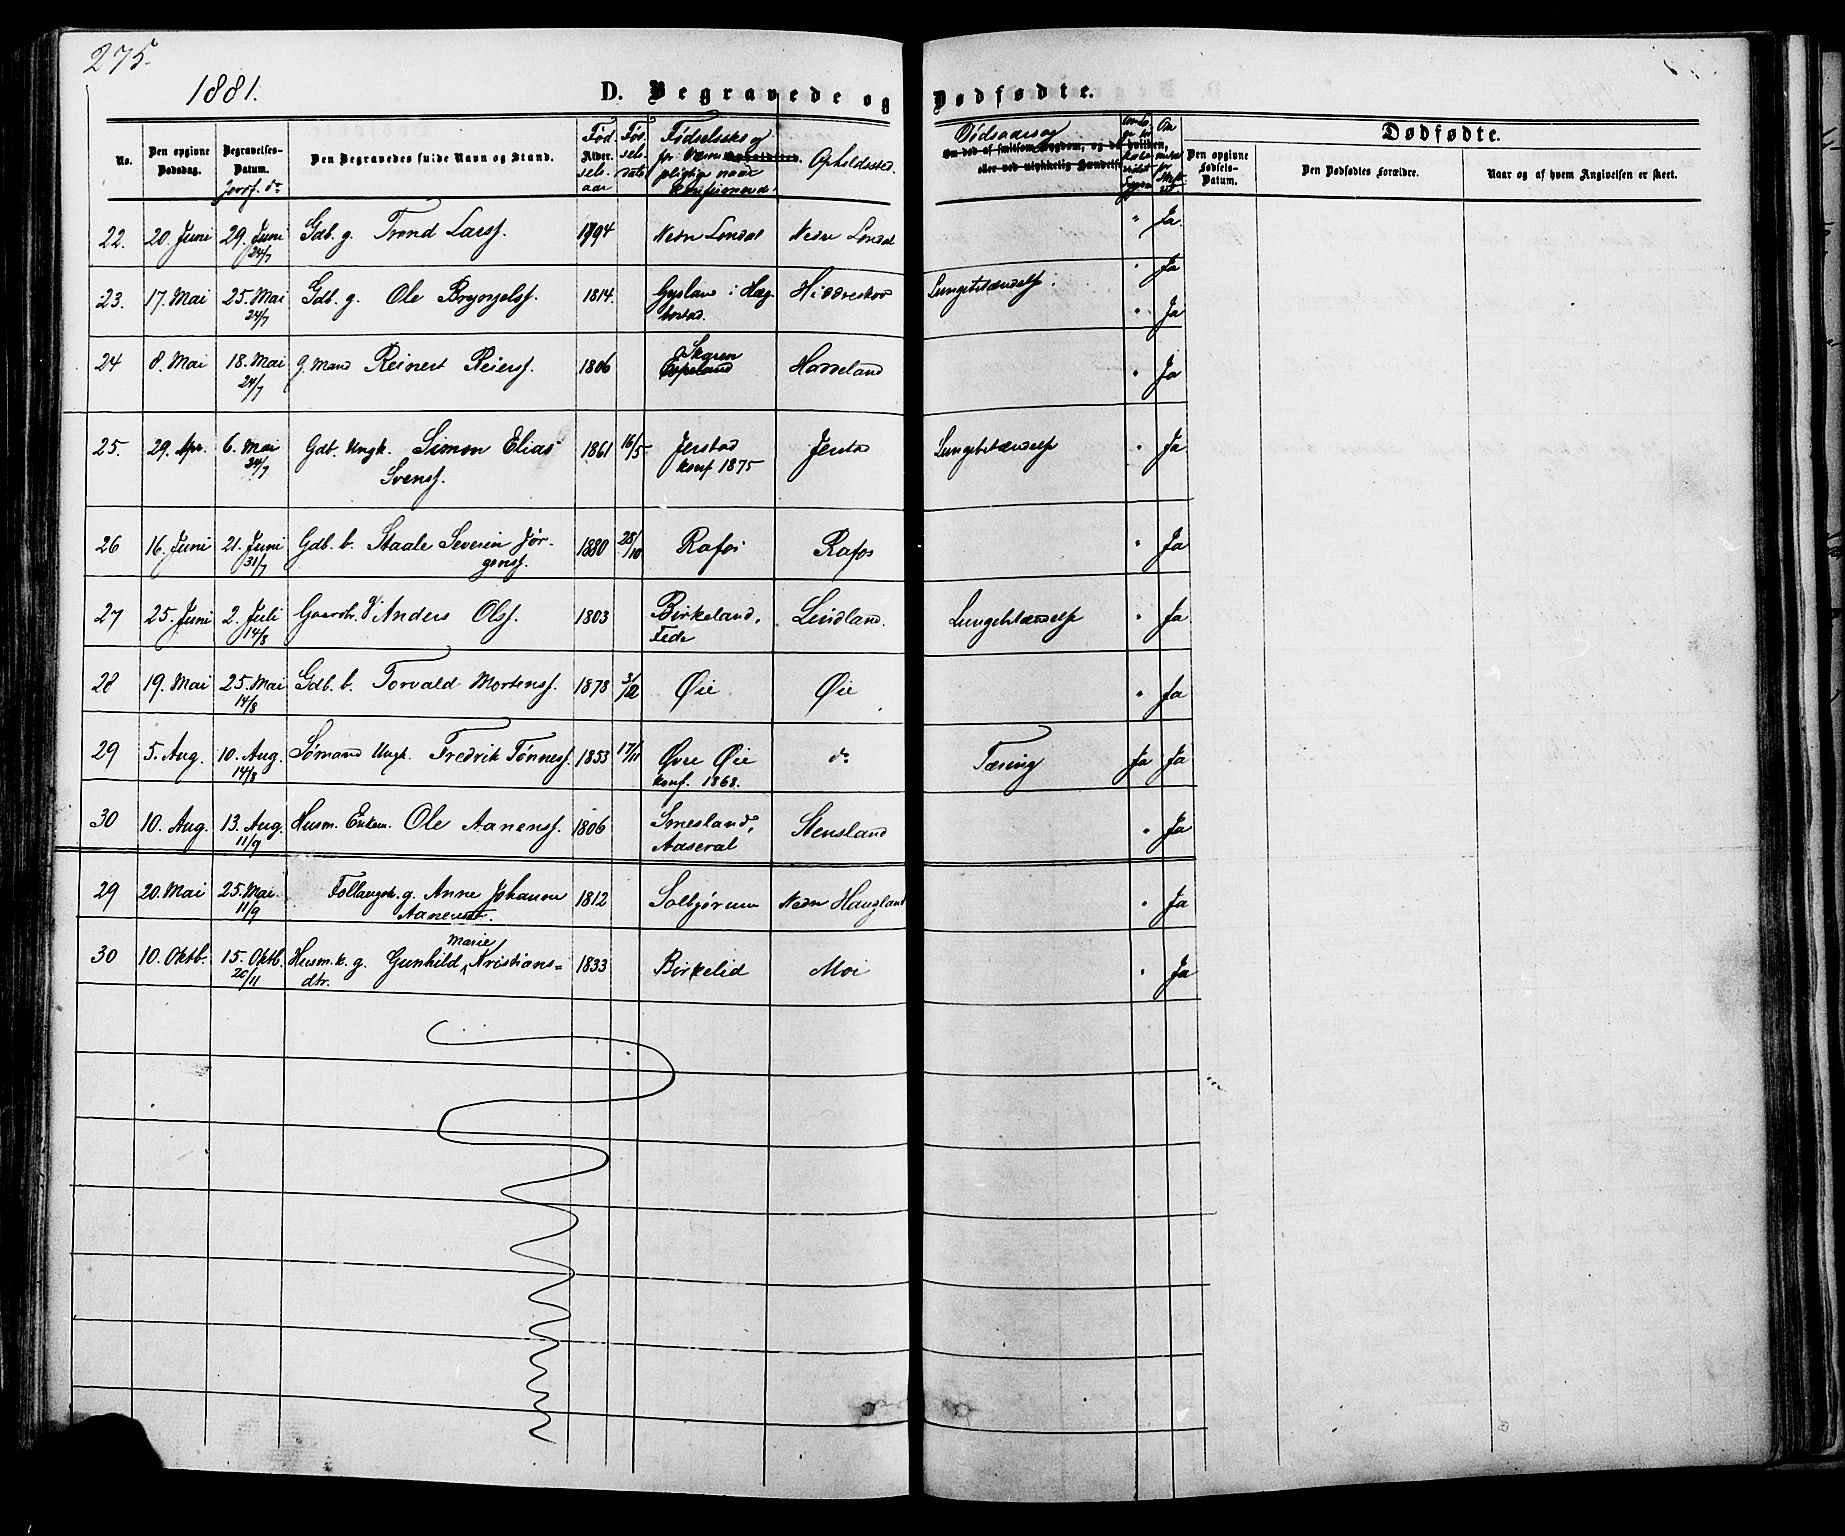 275.
1881.
D. Begravede og Dødfødte.
No.
Den opgivne Dødsdag.
Begravelses-Datum.
Jordf. do
Den Begravedes fulde Navn og Stand.
Fød
Alder.
sels-
aar
Fød
sels
dato
Fødselssted og
for Værne
pligtige naar
konfirmerede
Opholdssted.
Dødsaarsag
Om død af smitsom Sygdom, og da hvilken,
eller ved ulykkelig Hændelse
Dødfødte.
Den opgivne Fødsels-Datum.
Den Dødfødtes Forældre.
Naar og af hvem Angivelsen er skeet.
22. 20. Juni 29. Juni 24/7 Gdb. g. Trond Larsf. 1794 Nedre Londal Nedre Londal " Ja.
23. 17. Mai 25. Mai 24/7 Gdb. g. Ole Bryngelsf. 1814. Gysland i Hægbostad. Hiddreskog Lungebetændelse. " Ja
" Ja
24 8. Mai 18. Mai 24/7 G. mand Reinert Reiersf. 1806 Skaren Espeland Hasseland " Ja
25. 29. Apr. 6. Mai 24/7 Gdb. Ungk. Simon Elias Svensf. 1861 16/5 Jerstad konf 1875 Jerstad Lungebetændelse " Ja
26 16. Juni 21. Juni 31/7 Gdb. b. Staale Severin Jørgensf. 1880 28/10 Rafos Rafos " Ja
27 25. Juni 2. Juli 14/8 Gaardbr. g. Anders Olsf. 1803 Birkeland, Fede Lindland. Lungebetændelse " Ja
28 19. Mai 25. Mai 14/8 Gdb. b. Torvald Mortensf. 1878 3/12 Øie Øie " Ja
29 5. Aug. 10. Aug. 14/8 Sømand Ungk. Fredrik Tønnesf. 1853 17/11 Øvre Øie konf. 1868. do Tæring Ja Ja
30 10. Aug. 13. Aug. 11/9 Husm. Enkem. Ole Aanensf. 1806 Smesland, Aaseral Stensland " Ja
29 20. Mai 25. Mai. 11/9 Follaugsk. g. Anne Johanne Aanensdt. 1812 Solbjørum Nedre Haugland " Ja
30 10. Oktb. 15. Oktb. 20/11 Husm. k. g. Gunhild Marie Kristiansdtr. 1833 Birkelid Moi " Ja